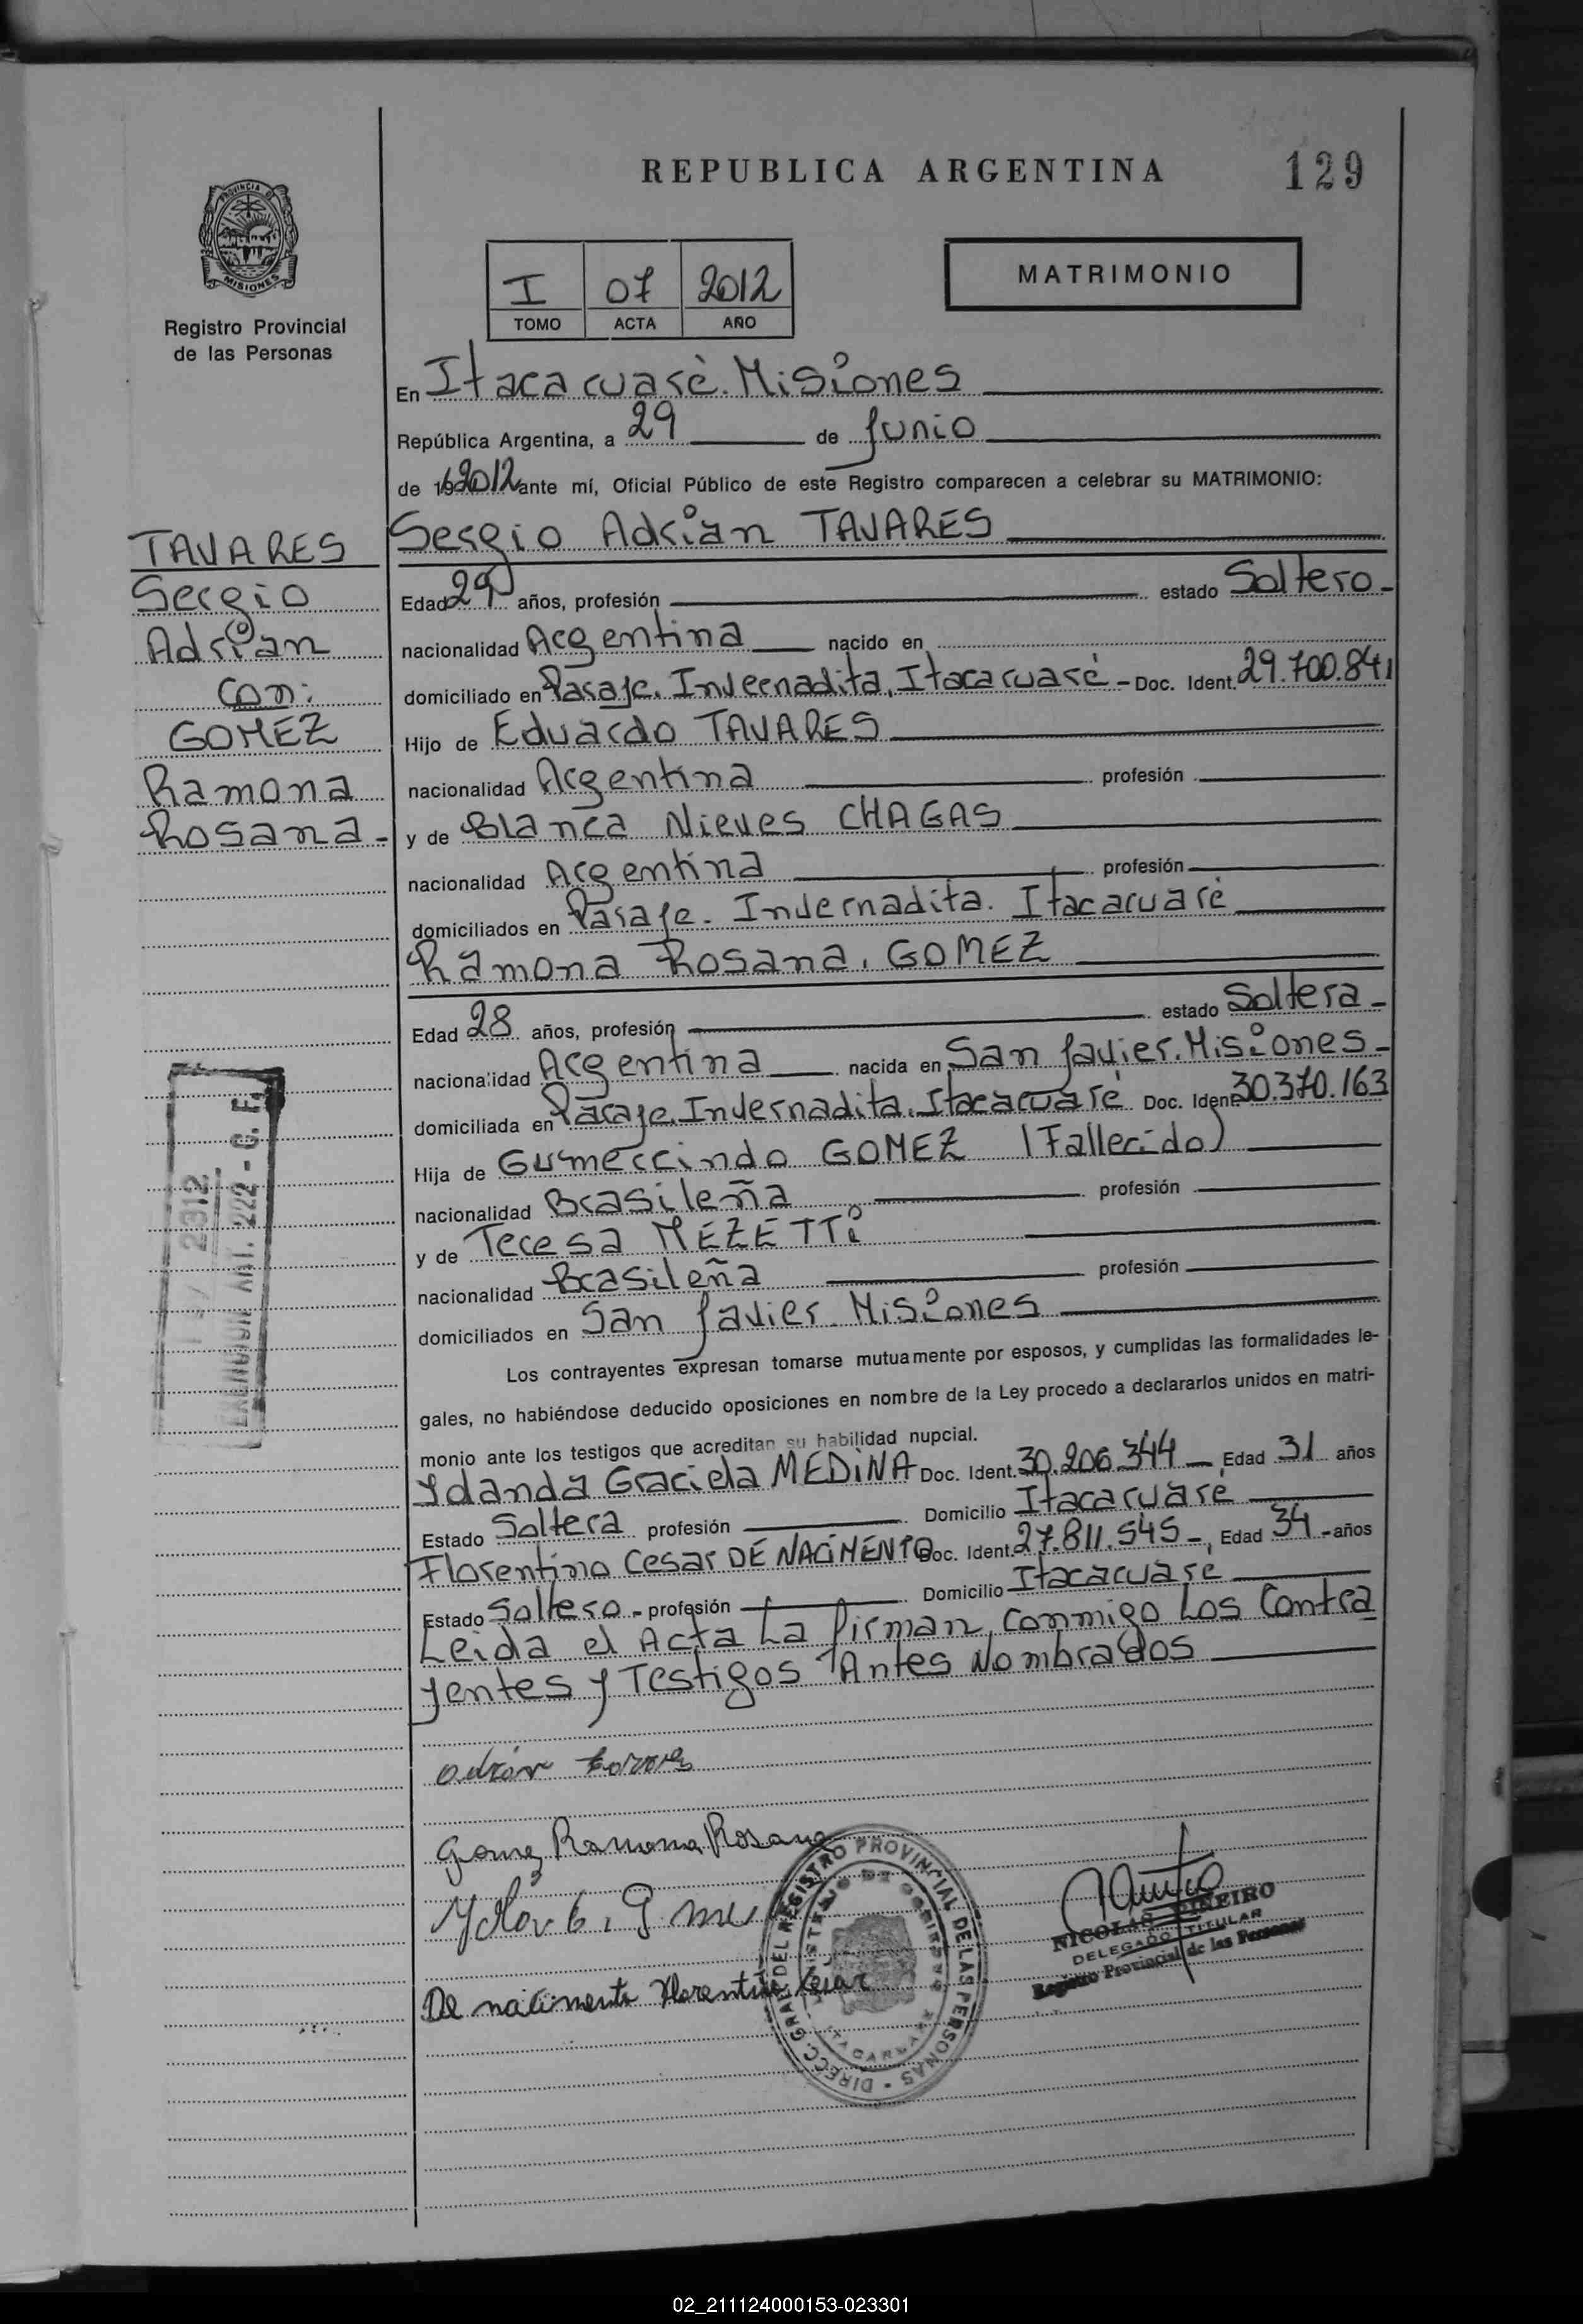 REPUBLICA ARGENTINA
129
PROVINCIA DE
MISIONES
Registro Provincial
de las Personas
I 07 2012
TOMO ACTA AÑO
MATRIMONIO
En Itacacuaré. Misiones
República Argentina, a 29 de Junio
de 19 2012 ante mí, Oficial Público de este Registro comparecen a celebrar su MATRIMONIO:
TAVARES
Sergio
Adrian
con:
GOMEZ
Ramona
Rosana-
Sergio Adrian TAVARES
Edad 29 años, profesión estado Soltero-
nacionalidad Argentina nacido en
domiciliado en Pasaje. Invernadita. Itacaruaré - Doc. Ident. 29.700.841
Hijo de Eduardo TAVARES
nacionalidad Argentina profesión
y de Blanca Nieves CHAGAS
nacionalidad Argentina profesión
domiciliados en Pasaje. Invernadita. Itacaruaré
Ramona Rosana. GOMEZ
Edad 28 años, profesión estado Soltera-
nacionalidad Argentina nacida en San Javier. Misiones-
domiciliada en Paraje. Invernadita. Itacaruaré Doc. Ident. 30.370.163
Hija de Gumercindo GOMEZ (Fallecido)
nacionalidad Brasileña profesión
y de Teresa MEZETTi
nacionalidad Brasileña profesión
domiciliados en San Javier. Misiones
Los contrayentes expresan tomarse mutuamente por esposos, y cumplidas las formalidades le-
gales, no habiéndose deducido oposiciones en nombre de la Ley procedo a declararlos unidos en matri-
monio ante los testigos que acreditan su habilidad nupcial.
Yolanda Graciela MEDiNA Doc. Ident. 30.206.344 - Edad 31 años
Estado Soltera profesión Domicilio Itacaruare
Florentino Cesar DE NACiMENTO Doc. Ident. 27.811.545 -, Edad 34 - años
Estado Soltero - profesión Domicilio Itacaruare
Leida el Acta La firman, conmigo Los Contra
yentes y Testigos Antes Nombrados
2312
ART. 222 - C. F.
Gomez Ramona Rosana
De nacimento Florentino Cesar
DIRECC. GRAL. DEL REGISTRO PROVINCIAL DE LAS PERSONAS
MINISTERIO DE GOBIERNO
NICOLAS PINEIRO
DELEGADO TITULAR
Registro Provincial de las Personas
02_211124000153-023301